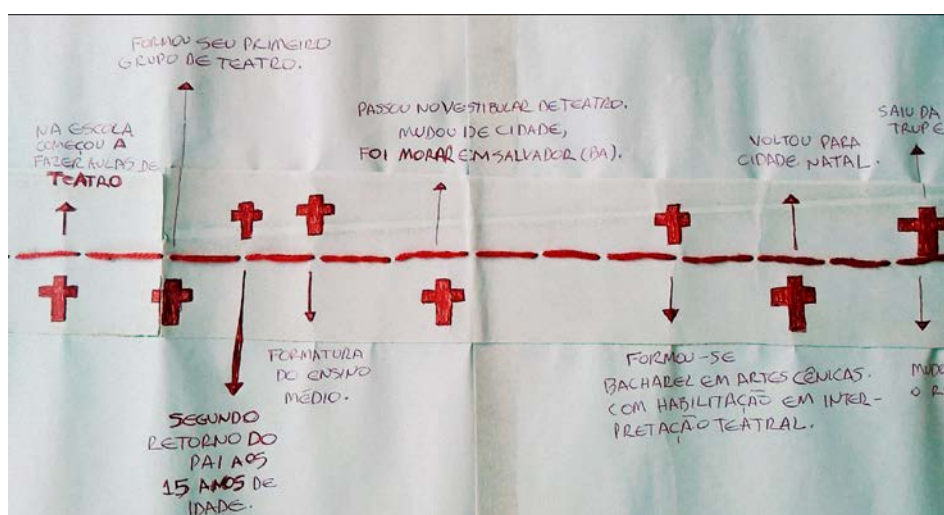 FORMOU SEU PRIMEIRO
GRUPO DE TEATRO.
NA ESCOLA
COMEÇOU A
FAZER AULAS DE
TEATRO
PASSOU NO VESTIBULAR DE TEATRO.
MUDOU DE CIDADE,
FOI MORAR EM SALVADOR (BA).
VOLTOU PARA
CIDADE NATAL.
SAIU DA
TRUPE
SEGUNDO
RETORNO DO
PAI AOS
15 ANOS DE
IDADE.
FORMATURA
DO ENSINO
MÉDIO.
FORMOU-SE
BACHAREL EM ARTES CÊNICAS.
COM HABILITAÇÃO EM INTER-
PRETAÇÃO TEATRAL.
O